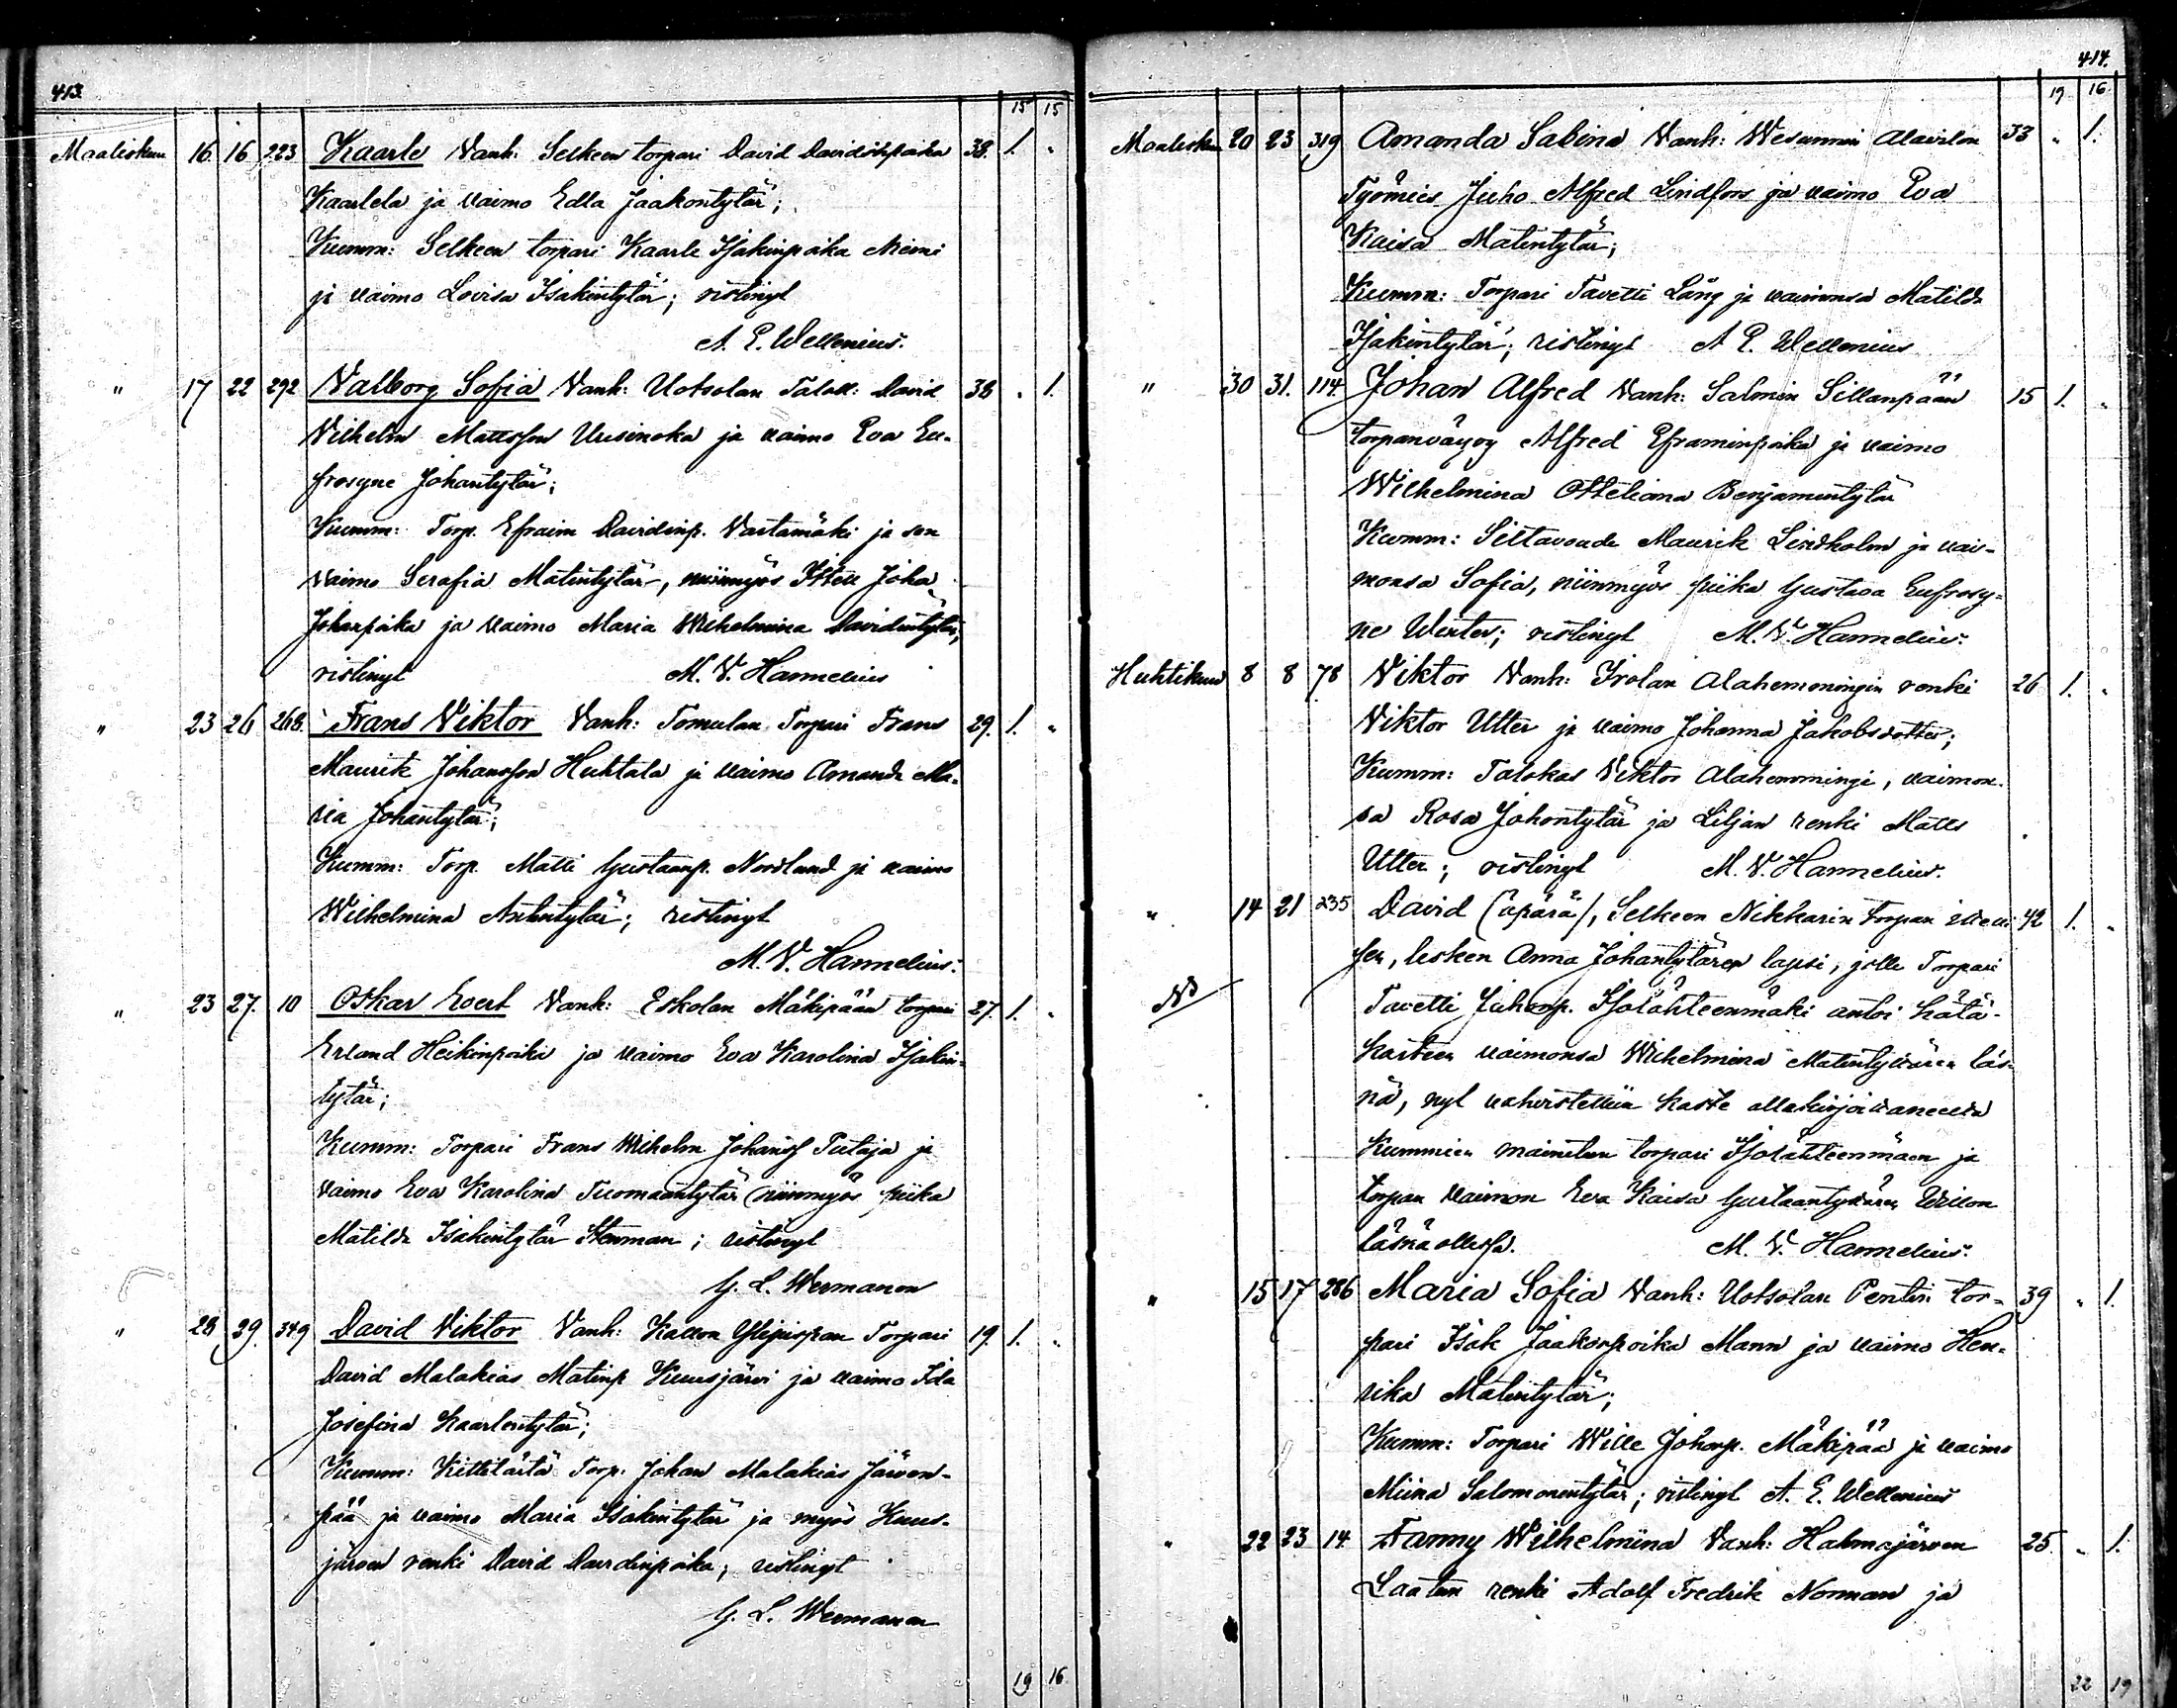 413.
15 15
Maaliskuu 16. 16 223 Kaarle Vanh: Selkeen torpari David Davidinpoika 38. 1. "
Kaarlela ja vaimo Edla Jaakontytär;
Kumm: Selkeen torpari Kaarle Isakinpoika Niemi
ja vaimo Lovisa Isakintytär; ristinyt
A. E. Wellenius.
" 17 22 292 Valborg Sofia Vanh: Uotsolan Taloll: David 38 " 1.
Vilhelm Mattsson Uusinoka ja vaimo Eva Eu-
frosyne Johantytär;
Kumm: Torp. Efraim Davidinp. Vartamäki ja sen
vaimo Serafia Matintytär, niinmyös Itell Joha
Johanpoika ja vaimo Maria Wilhelmina Davidintytär;
ristinyt M. V. Hannelius
" 23 26 268. Frans Viktor Vanh: Tomulan Torpari Frans 29. 1. "
Maurits Johansson Huhtala ja vaimo Amanda Ma-
ria Johantytär;
Kumm: Torp. Matti Gustaanp. Nordlund ja vaimo
Wilhelmina Antintytär; ristinyt
M. V. Hannelius.
" 23 27. 10 Oskar Evert Vanh: Eskolan Mäkipään torpari 27. 1. "
Erland Heikinpoika ja vaimo Eva Karolina Isakin-
tytär;
Kumm: Torpari Frans Wilhelm Johanss Putaja ja
vaimo Eva Karolina Tuomaantytär niinmyös piika
Matilda Isakintytär Stenman; ristinyt
G. L. Wermanen
" 28 29. 349 David Viktor Vanh: Kallon Ylipispan Torpari 19. 1. "
David Malakias Matinp Kuusjärvi ja vaimo Ida
Josefina Kaarlentytär;
Kumm: Kittilästä Torp. Johan Malakias Järven-
pää ja vaimo Maria Isakintytär ja myös Kuus-
järven renki David Davidinpoika; ristinyt
G. L. Wermanen
19 16
414.
19 16
Maaliskuu 20 23 319 Amanda Sabina Vanh: Wesunnin Alavilon 33 " 1.
Työmies Juho Alfred Lindfors ja vaimo Eva
Kaisa Matintytär;
Kumm: Torpari Tavetti Lång ja vaimonsa Matilda
Isakintytär; ristinyt A E. Wellenius
" 30 31. 114. Johan Alfred Vanh: Salmin Sillanpään 15 1. "
torpanvävyy Alfred Eframinpoika ja vaimo
Wilhelmina Otteliana Benjamintytär
Kumm: Siltavouti Maurits Lindholm ja vai-
monsa Sofia, niinmyös piika Gustava Eufrosy-
ne Winter; ristinyt M. V. Hannelius.
Huhtikuu 8 8 78 Viktor Vanh: Irolan Alahemmingin renki 26 1. "
Viktor Utter ja vaimo Johanna Jakobsdotter;
Kumm: Talokas Viktor Alahemmingi, vaimon-
sa Rosa Johontytär ja Liljan renki Matts
Utter; ristinyt M. V. Hannelius.
" 14 21 235 David (äpärä), Selkeen Nikkarin torpan itelli- 42 1. "
sen, lesken Anna Johantytären lapsi, jolle Torpari
NB Tavetti Juhonp. Isolähteenmäki antoi hätä-
kasteen vaimonsa Wilhelmina Matintyttären läs-
nä, nyt vahvistettiin kaste allakirjoittaneelta
Kummien mainitun torpari Isolähteenmäen ja
torpan vaimon Eva Kaisa Gustaantyttären Willon
läsnäollessa. M. V. Hannelius.
" 15 17 286 Maria Sofia Vanh: Uotsolan Pentin tor- 39 " 1.
pari Isak Jaakonpoika Mann ja vaimo Hen-
rika Matintytär;
Kumm: Torpari Wille Johanp. Mäkipää ja vaimo
Miina Salomonintytär; ristinyt A. E. Wellenius
" 22 23 14 Fanny Wilhelmiina Vanh: Halmojärven 25. " 1.
Laatun renki Adolf Fredrik Norman ja
22 19